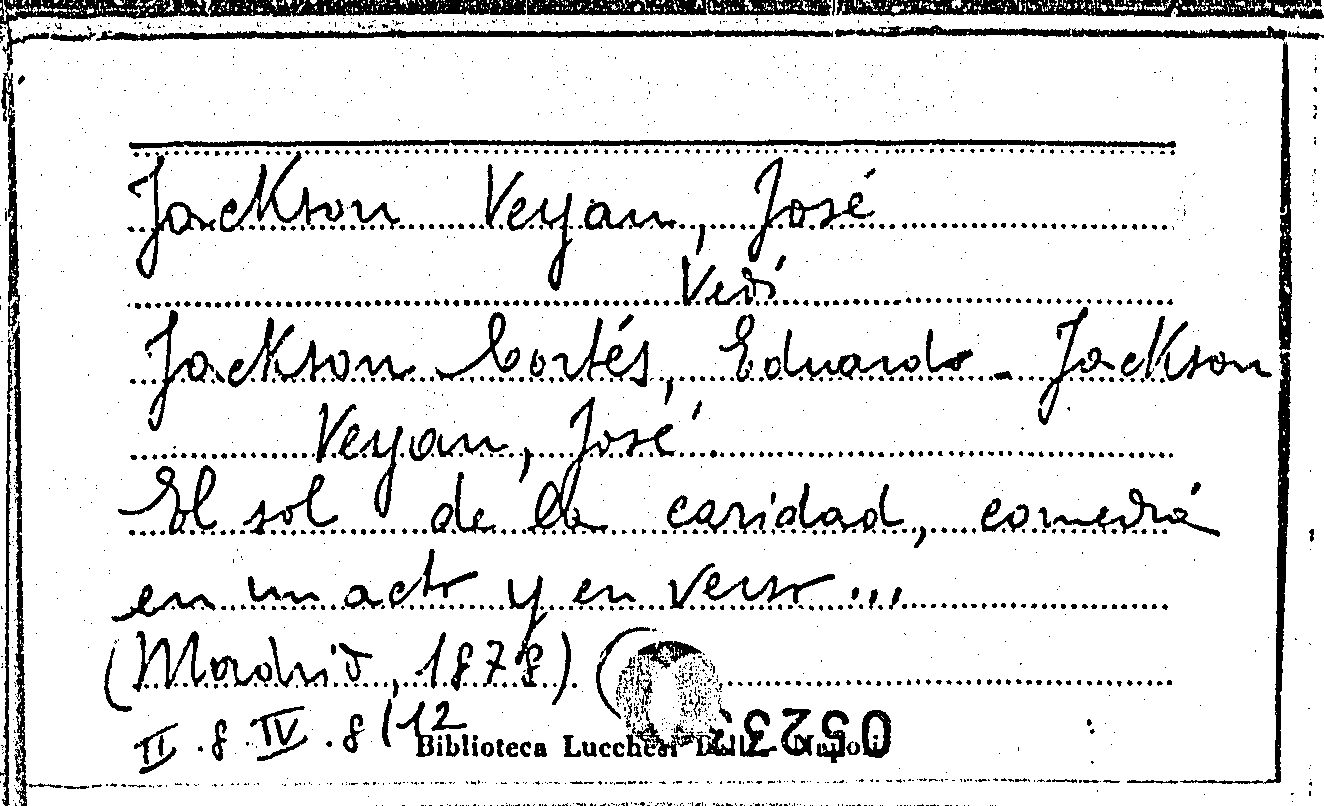 Jackson Veyan, José
Vedi
Jackson Cortés, Eduardo - Jackson
Veyan, José
El sol de la caridad, comedia
en un acto y en verso...
(Madrid, 1878) (
II.8.IV.8(12
Biblioteca Lucchesi Palli - Napoli
05233